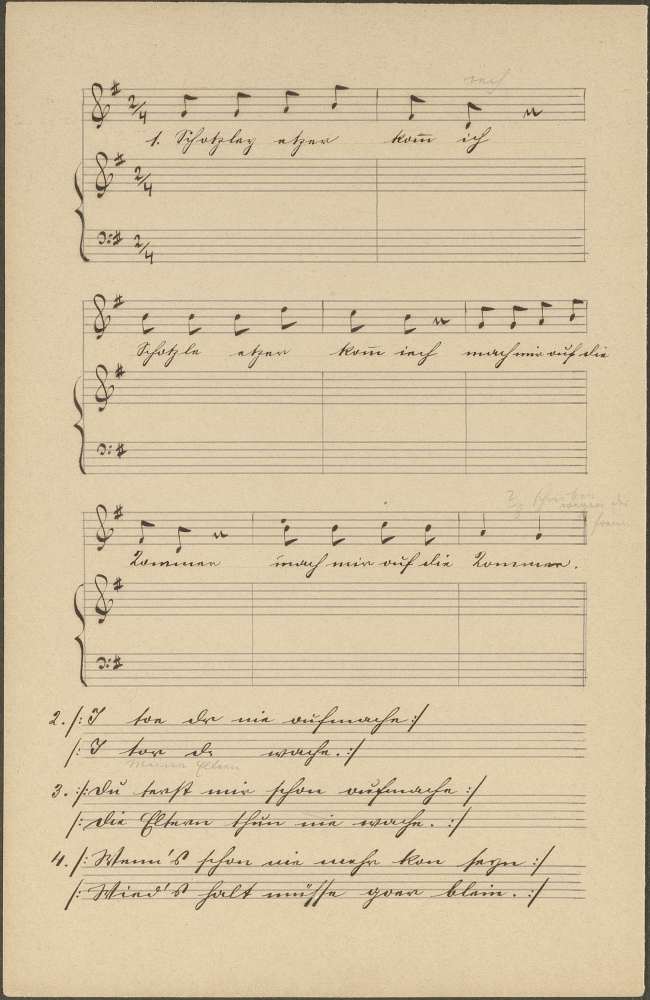 1. Schatzley etzer kom̄ ich
Schatzle etzer kom̄ iech mach mir auf die
Kammer mach mir auf die Kammer.
2. /: I toe dr nie aufmache :/
/: I tor d wache. :/
meine Eltern
3. :/: Du terfst mir schon aufmache :/
/: Die Eltern thun nie wache. :/
4. /: Wenn's schon nie mehr kon seyn :/
/: Wied's halt müsse goer blein. :/